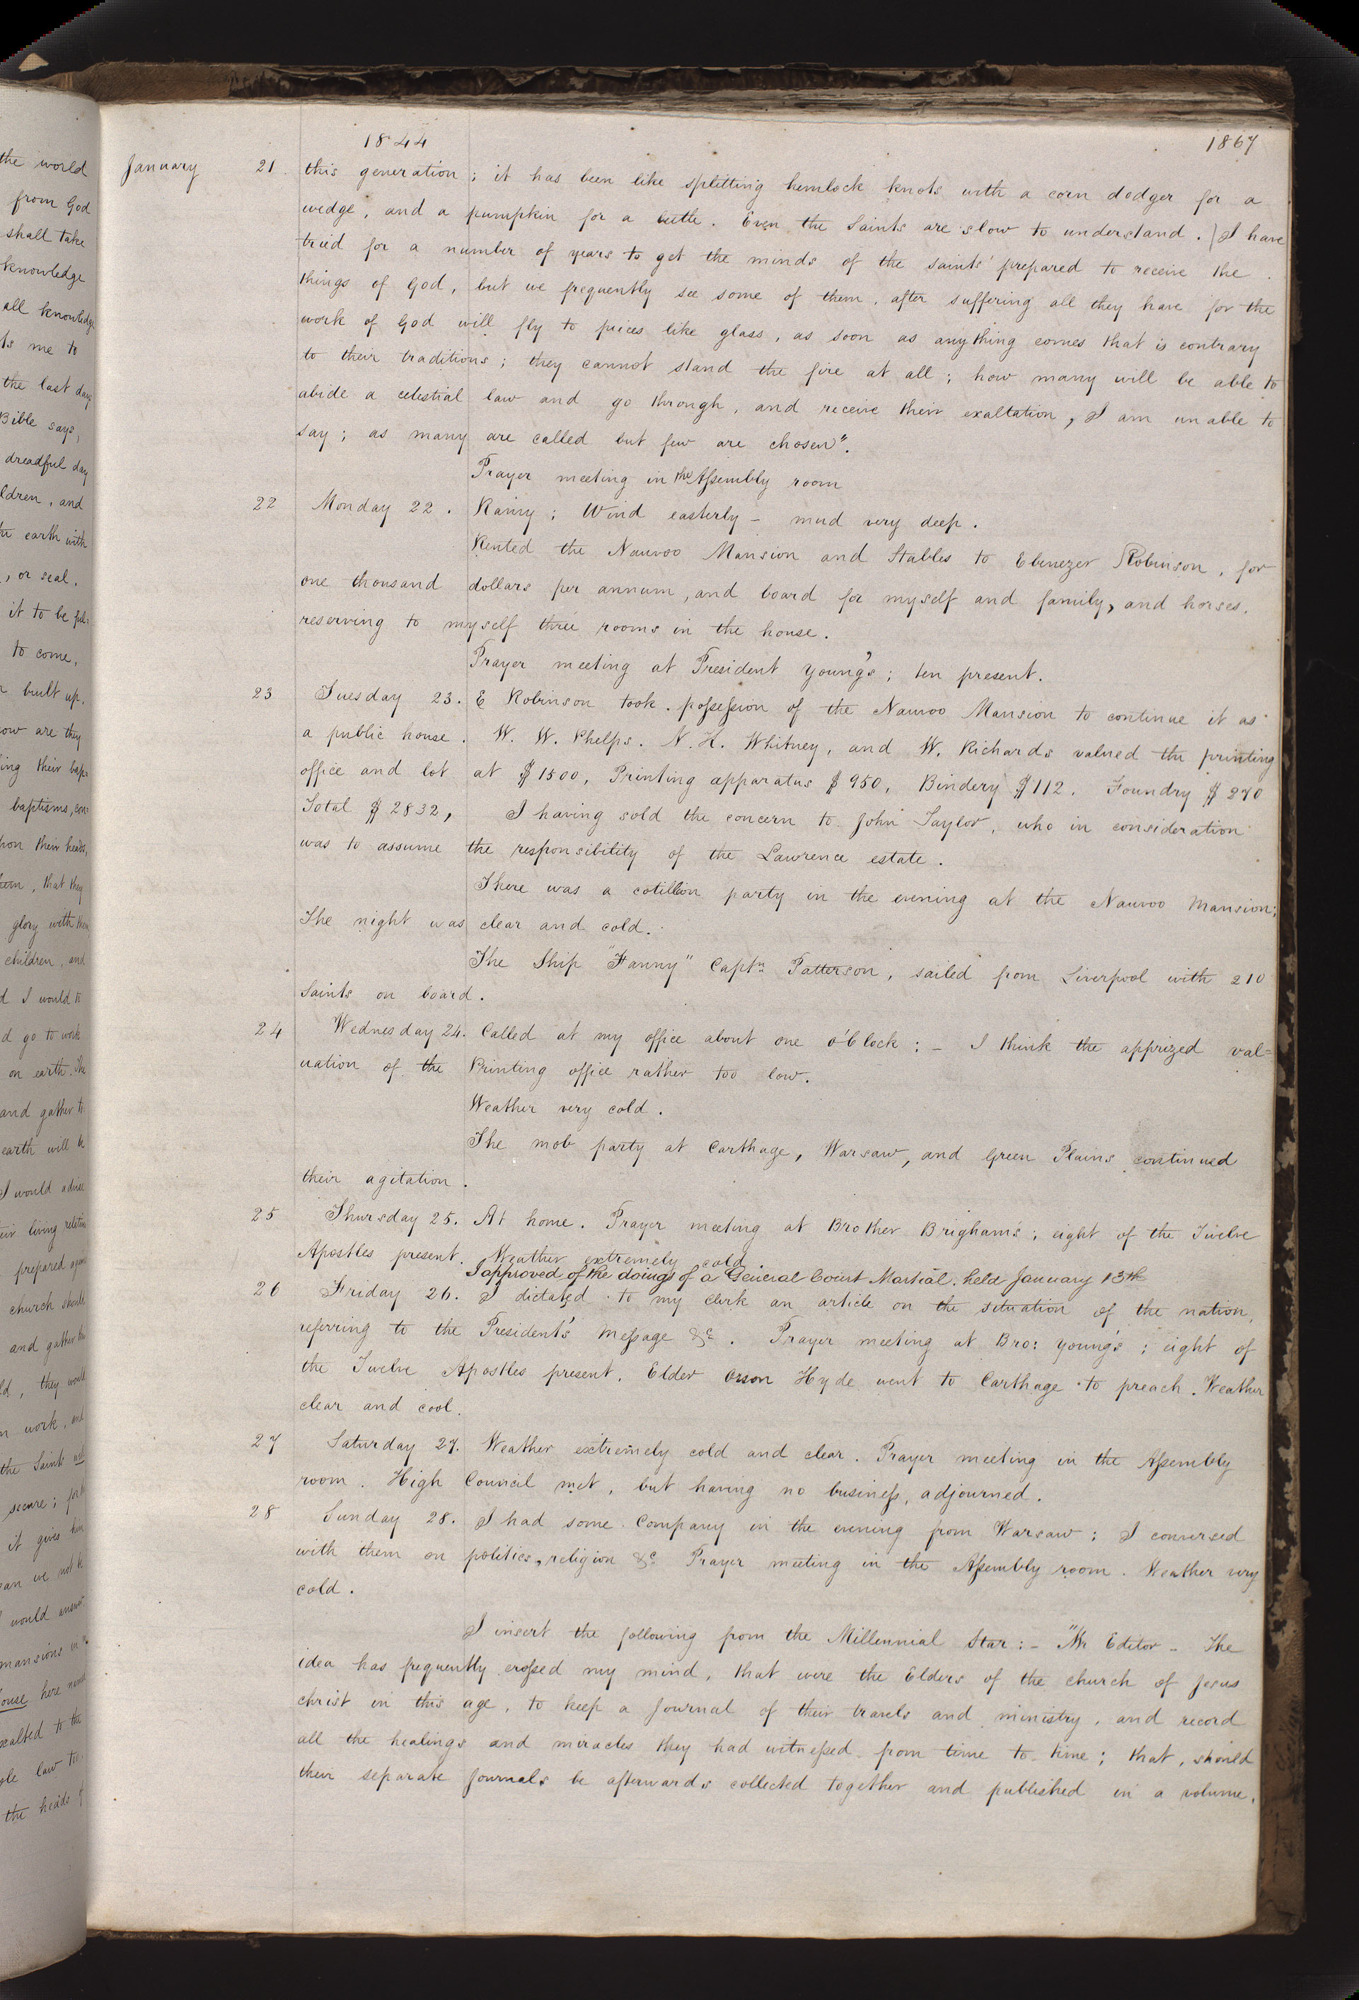 1844
1867
January 21. this generation; it has been like splitting hemlock knots with a corn dodger for a
wedge, and a pumpkin for a beetle. Even the Saints are slow to understand. I have
tried for a number of years to get the minds of the saints prepared to receive the
things of God, but we frequently see some of them, after suffering all they have for the
work of God will fly to pieces like glass, as soon as anything comes that is contrary
to their traditions; they cannot stand the fire at all; how many will be able to
abide a celestial law and go through, and receive their exaltation, I am unable to
say; as many are called but few are chosen".
Prayer meeting in the Assembly room
22 Monday 22. Rainy; Wind easterly – mud very deep.
Rented the Nauvoo Mansion and Stables to Ebenezer Robinson, for
one thousand dollars per annum, and board for myself and family, and horses.
reserving to myself three rooms in the house.
Prayer meeting at President Young's; ten present.
23 Tuesday 23. E Robinson took possession of the Nauvoo Mansion to continue it as
a public house. W. W. Phelps. N. K. Whitney, and W. Richards valued the printing
office and lot at $1500, Printing apparatus $950, Bindery $112. Foundry $270
Total $2832, I having sold the concern to John Taylor, who in consideration
was to assume the responsibility of the Lawrence estate.
There was a cotillion party in the evening at the Nauvoo Mansion;
The night was clear and cold.
The Ship "Fanny" Captn Patterson, sailed from Liverpool with 210
Saints on board.
24 Wednesday 24. Called at my office about one o'Clock; – I think the apprized val=
uation of the Printing office rather too low.
Weather very cold.
The mob party at Carthage, Warsaw, and Green Plains continued
their agitation.
25 Thursday 25. At home. Prayer meeting at Brother Brigham's; eight of the Twelve
Apostles present. Weather extremely cold.
I approved of the doings of a General Court Martial. held January 13th
26 Friday 26. I dictated to my clerk an article on the situation of the nation,
referring to the President's Message &c. Prayer meeting at Bro: Young's; eight of
the Twelve Apostles present. Elder Orson Hyde went to Carthage to preach. Weather
clear and cool.
27 Saturday 27. Weather extremely cold and clear. Prayer meeting in the Assembly
room. High Council met, but having no business, adjourned.
28 Sunday 28. I had some Company in the evening from Warsaw; I conversed
with them on politics, religion &c Prayer meeting in the Assembly room. Weather very
cold.
I insert the following from the Millennial Star: – "Mr Editor – The
idea has frequently crossed my mind, that were the Elders of the church of Jesus
christ in this age, to keep a Journal of their travels and ministry, and record
all the healings and miracles they had witnessed from time to time; that, should
their separate Journals be afterwards collected together and published in a volume,
the world
from God
shall take
knowledge
all knowledge
me to
the last day
Bible says,
dreadful day
and
earth with
, or seal.
it to be
to come,
built up.
are they
their
baptisms,
their heads,
, that they
glory with
children, and
I would
go to work
on earth. The
and gather
earth will be
I would advise
living
prepared
church should
and gather
, they would
work, and
the Saints
secure;
it gives
can we not
would
mansions in
here
exalted to the
law
the heads of